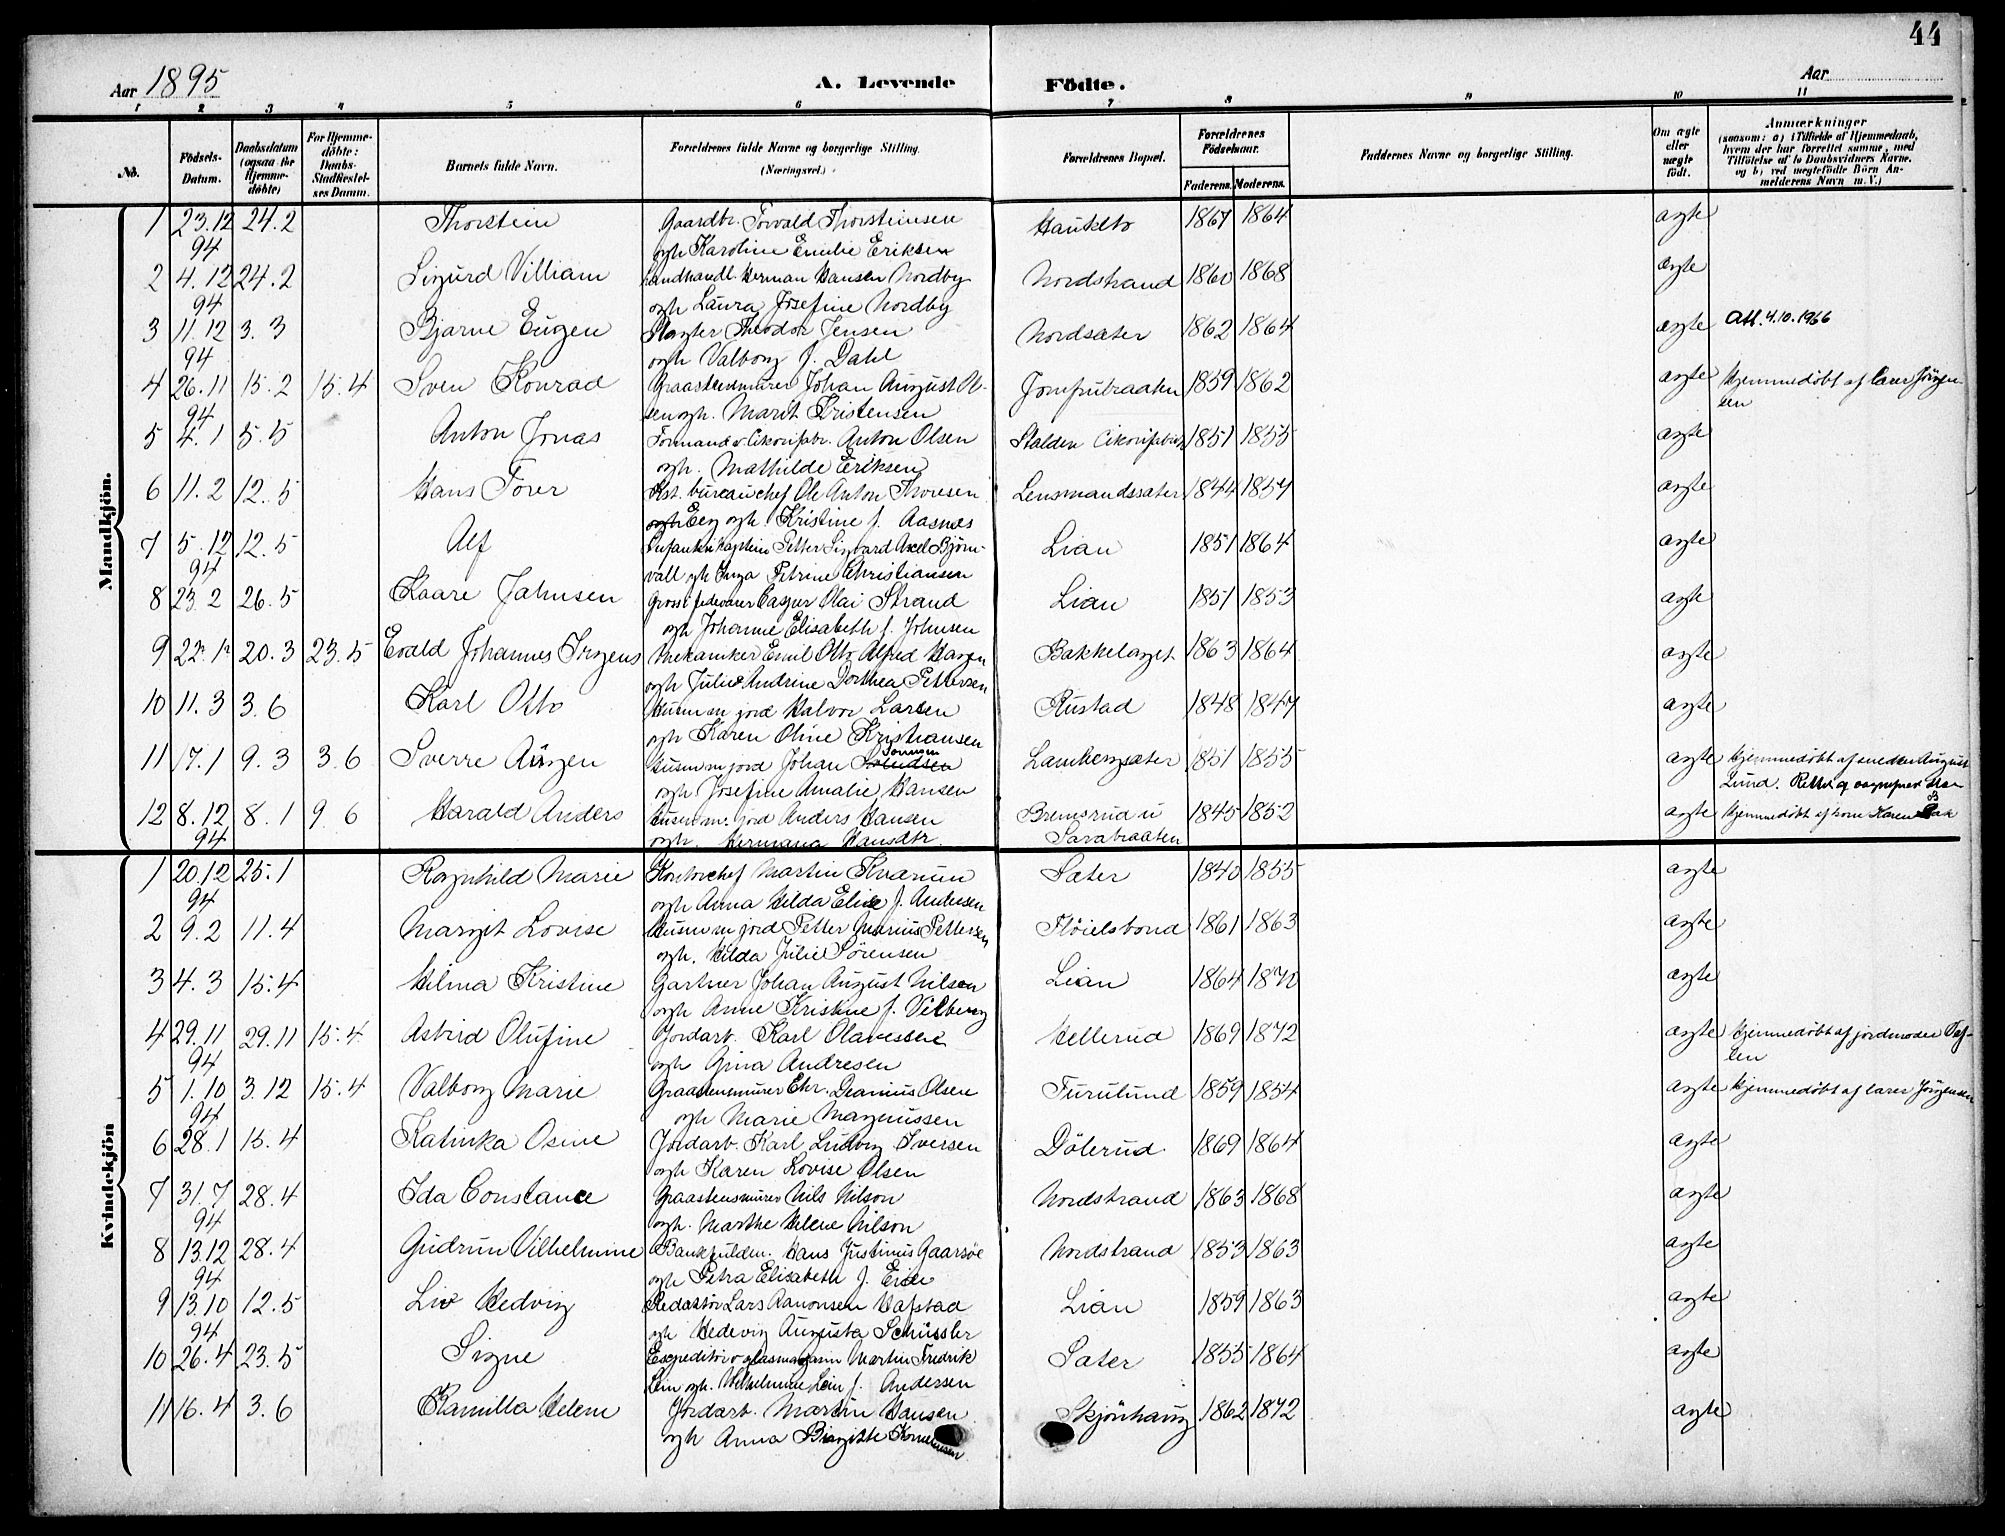 44
Aar 1895
A. Levende Födte.
Aar
1 2 3 4 5 6 7 8 9 10 11
No.
Födsels-Datum.
Daabsdatum (ogsaa for Hjemmedöbte)
For Hjemmedöbte: Daabs-Stadfæstelses Datum.
Barnets fulde Navn.
Forældrenes fulde Navne og borgerlige Stilling. (Næringsvei.)
Forældrenes Bopæl.
Forældrenes Födselsaar.
Faderens. Moderens.
Faddernes Navne og borgerlige Stilling.
Om ægte eller uægte födt.
Anmærkninger
(saasom: a) i Tilfælde af Hjemmedaab, hvem der har forrettet samme, med Tilföielse af to Daabsvidners Navne. og b) ved uægtefödte Börn Anmelderens Navn m. V.)
Mandkjön.
1 23.12 24.2 Thorstein Gaardbr. Torvald Thorsteinsen Hauketo 1867 1864 ægte
94 ogh Karoline Emilie Eriksen
2 4.12 24.2 Sigurd Villiam Landhandl. Herman Hansen Nordby Nordstrand 1860 1868 ægte
94 ogh Laura Josefine Nordby
3 11.12 3.3 Bjarne Eugen Slagter Theodor Jensen Nordsæter 1862 1864 ægte Att. 4.10.1966
94 ogh Valborg f. Dahl
4 26.11 15.2 15.4 Sven Konrad Graastensmurer Johan August Ol- Jomfrubraaten 1859 1862 ægte Hjemmedøbt af lærer Jörgen-
94 sen ogh. Marit Kristensen sen
5 4.1 5.5 Anton Jonas Formand v. Cikorifabr. Anton Olsen Stalden Cikorifabrik 1851 1855 ægte
ogh. Mathilde Eriksen
6 11.2 12.5 Hans Torer Kst. bureauchef Ole Anton Thoresen Lensmandssæter 1844 1857 ægte
ogh. Kristine f. Aasnes
7 5.12 12.5 Alf Infanterikaptein Petter Sigvard Axel Björn- Lian 1851 1864 ægte
94 vall ogh Inga Petrine Christiansen
8 23.2 26.5 Kaare Johnsen Grosserer Casper Olai Strand Lian 1851 1853 ægte
ogh Johanne Elisabeth f. Johnsen
9 22.12 20.3 23.5 Evald Johannes Irgens Mekaniker Emil Otto Alfred Hagen Bakkelaget 1863 1864 ægte
ogh Julie Andrine Dorthea Pettersen
10 11.3 3.6 Karl Otto Husm m jord Halvor Larsen Rustad 1848 1847 ægte
ogh Karen Oline Kristiansen
11 17.1 9.3 3.6 Sverre Aagen Husm m jord Johan 1851 1855 ægte Hjemmedøbt af snedker August
ogh Josefine Amalie Hansen Lund.
12 8.12 8.1 9.6 Harald Anders Husm m. jord Anders Hansen Bremsrud u 1845 1852 ægte Hjemmedøbt af kone Karen
94 ogh. Hermana Hansdtr. Sarabraaten
Kvindekjön
1 20.12 25.1 Ragnhild Marie Kontorchef Martin Kværum Sæter 1840 1855 ægte
94 ogh Anna Hilda Elise f. Andersen
2 9.2 11.4 Margit Lovise Husm m jord Petter Marius Pettersen Flöielsbond 1861 1863 ægte
ogh. Hilda Julie Sörensen
3 4.3 15.4 Hilma Kristine Gartner Johan August Nilsen Lian 1864 1870 ægte
ogh Anne Kristine f. Vilberg
4 29.11 29.11 15.4 Astrid Olufine Jordarb. Karl Olavessen Hellerud 1869 1872 ægte Hjemmedøbt af jordmoder
94 ogh Gina Andresen
5 1.10 3.12 15.4 Valborg Marie Graastensmurer Chr. Olsen Furulund 1859 1854 ægte Hjemmedøbt af lærer Jörgensen
94 ogh Marie Magnussen
6 28.1 15.4 Katinka Osine Jordarb. Karl Ludvig Iversen Dölerud 1869 1864 ægte
ogh Karen Lovise Olsen
7 31.7 28.4 Ida Constance Graastensmurer Nils Nilson Nordstrand 1863 1868 ægte
94 ogh. Marthe Helene Nilson
8 13.12 28.4 Gudrun Vilhelmine Bankfuldm. Hans Justinus Gaarsöe Nordstrand 1853 1863 ægte
94 ogh Petra Elisabeth f. Eide
9 13.10 12.5 Liv Hedvig Redaktör Lars Aanonsen Hafstad Lian 1859 1863 ægte
94 ogh Hedevig Augusta Schüssler
10 26.4 23.5 Signe Expeditör v glasmagasin Martin Fredrik Sæter 1855 1864 ægte
Lein ogh. Wilhelmine Lein f. Andersen
11 16.4 3.6 Kamilla Helene Jordarb. Martin Hansen Skjönhaug 1862 1872 ægte
ogh Anna Birgitte